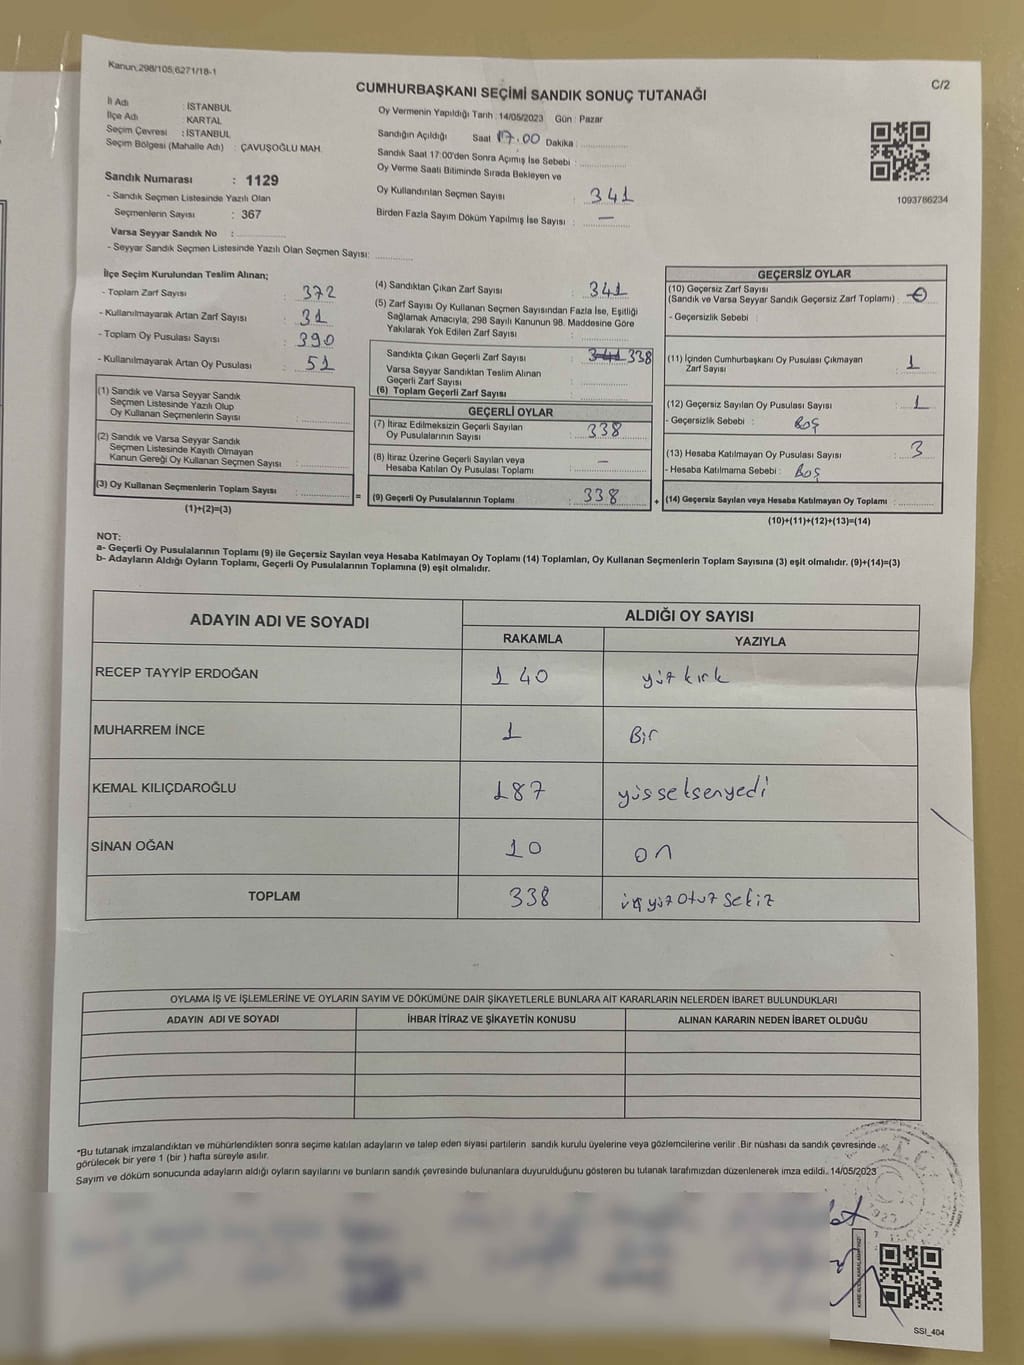 Kanun;298/105;6271/18-1
C/2
CUMHURBAŞKANI SEÇİMİ SANDIK SONUÇ TUTANAĞI
İl Adı : İSTANBUL
İlçe Adı : KARTAL
Seçim Çevresi : İSTANBUL
Seçim Bölgesi (Mahalle Adı) : ÇAVUŞOĞLU MAH.
Sandık Numarası : 1129
- Sandık Seçmen Listesinde Yazılı Olan
Seçmenlerin Sayısı : 367
Varsa Seyyar Sandık No :
- Seyyar Sandık Seçmen Listesinde Yazılı Olan Seçmen Sayısı:
Oy Vermenin Yapıldığı Tarih : 14/05/2023 Gün : Pazar
Sandığın Açıldığı Saat 17.00 Dakika :
Sandık Saat 17:00'den Sonra Açımış İse Sebebi :
Oy Verme Saati Bitiminde Sırada Bekleyen ve
Oy Kullandırılan Seçmen Sayısı : 341
Birden Fazla Sayım Döküm Yapılmış İse Sayısı : —
1093786234
İlçe Seçim Kurulundan Teslim Alınan;
- Toplam Zarf Sayısı : 372
- Kullanılmayarak Artan Zarf Sayısı : 31
- Toplam Oy Pusulası Sayısı : 390
- Kullanılmayarak Artan Oy Pusulası : 51
(1) Sandık ve Varsa Seyyar Sandık
Seçmen Listesinde Yazılı Olup
Oy Kullanan Seçmenlerin Sayısı :
(2) Sandık ve Varsa Seyyar Sandık
Seçmen Listesinde Kayıtlı Olmayan
Kanun Gereği Oy Kullanan Seçmen Sayısı :
(3) Oy Kullanan Seçmenlerin Toplam Sayısı :
(1)+(2)=(3)
=
(4) Sandıktan Çıkan Zarf Sayısı : 341
(5) Zarf Sayısı Oy Kullanan Seçmen Sayısından Fazla İse, Eşitliği
Sağlamak Amacıyla, 298 Sayılı Kanunun 98. Maddesine Göre
Yakılarak Yok Edilen Zarf Sayısı :
Sandıkta Çıkan Geçerli Zarf Sayısı : 341 338
Varsa Seyyar Sandıktan Teslim Alınan
Geçerli Zarf Sayısı :
(6) Toplam Geçerli Zarf Sayısı :
GEÇERLİ OYLAR
(7) İtiraz Edilmeksizin Geçerli Sayılan
Oy Pusulalarının Sayısı : 338
(8) İtiraz Üzerine Geçerli Sayılan veya
Hesaba Katılan Oy Pusulası Toplamı : —
(9) Geçerli Oy Pusulalarının Toplamı : 338
+
GEÇERSİZ OYLAR
(10) Geçersiz Zarf Sayısı
(Sandık ve Varsa Seyyar Sandık Geçersiz Zarf Toplamı) :
- Geçersizlik Sebebi :
(11) İçinden Cumhurbaşkanı Oy Pusulası Çıkmayan
Zarf Sayısı : 1
(12) Geçersiz Sayılan Oy Pusulası Sayısı : 1
- Geçersizlik Sebebi : Boş
(13) Hesaba Katılmayan Oy Pusulası Sayısı : 3
- Hesaba Katılmama Sebebi : Boş
(14) Geçersiz Sayılan veya Hesaba Katılmayan Oy Toplamı :
(10)+(11)+(12)+(13)=(14)
NOT:
a- Geçerli Oy Pusulalarının Toplamı (9) ile Geçersiz Sayılan veya Hesaba Katılmayan Oy Toplamı (14) Toplamları, Oy Kullanan Seçmenlerin Toplam Sayısına (3) eşit olmalıdır. (9)+(14)=(3)
b- Adayların Aldığı Oyların Toplamı, Geçerli Oy Pusulalarının Toplamına (9) eşit olmalıdır.
ADAYIN ADI VE SOYADI
ALDIĞI OY SAYISI
RAKAMLA YAZIYLA
RECEP TAYYİP ERDOĞAN 140 yüz kırk
MUHARREM İNCE 1 Bir
KEMAL KILIÇDAROĞLU 187 yüsseksenyedi
SİNAN OĞAN 10 on
TOPLAM 338 üçyüz otuz sekiz
OYLAMA İŞ VE İŞLEMLERİNE VE OYLARIN SAYIM VE DÖKÜMÜNE DAİR ŞİKAYETLERLE BUNLARA AİT KARARLARIN NELERDEN İBARET BULUNDUKLARI
ADAYIN ADI VE SOYADI İHBAR İTİRAZ VE ŞİKAYETİN KONUSU ALINAN KARARIN NEDEN İBARET OLDUĞU
*Bu tutanak imzalandıktan ve mühürlendikten sonra seçime katılan adayların ve talep eden siyasi partilerin sandık kurulu üyelerine veya gözlemcilerine verilir .Bir nüshası da sandık çevresinde
görülecek bir yere 1 (bir ) hafta süreyle asılır.
Sayım ve döküm sonucunda adayların aldığı oyların sayılarını ve bunların sandık çevresinde bulunanlara duyurulduğunu gösteren bu tutanak tarafımızdan düzenlenerek imza edildi. 14/05/2023
T.C.
SSI_404